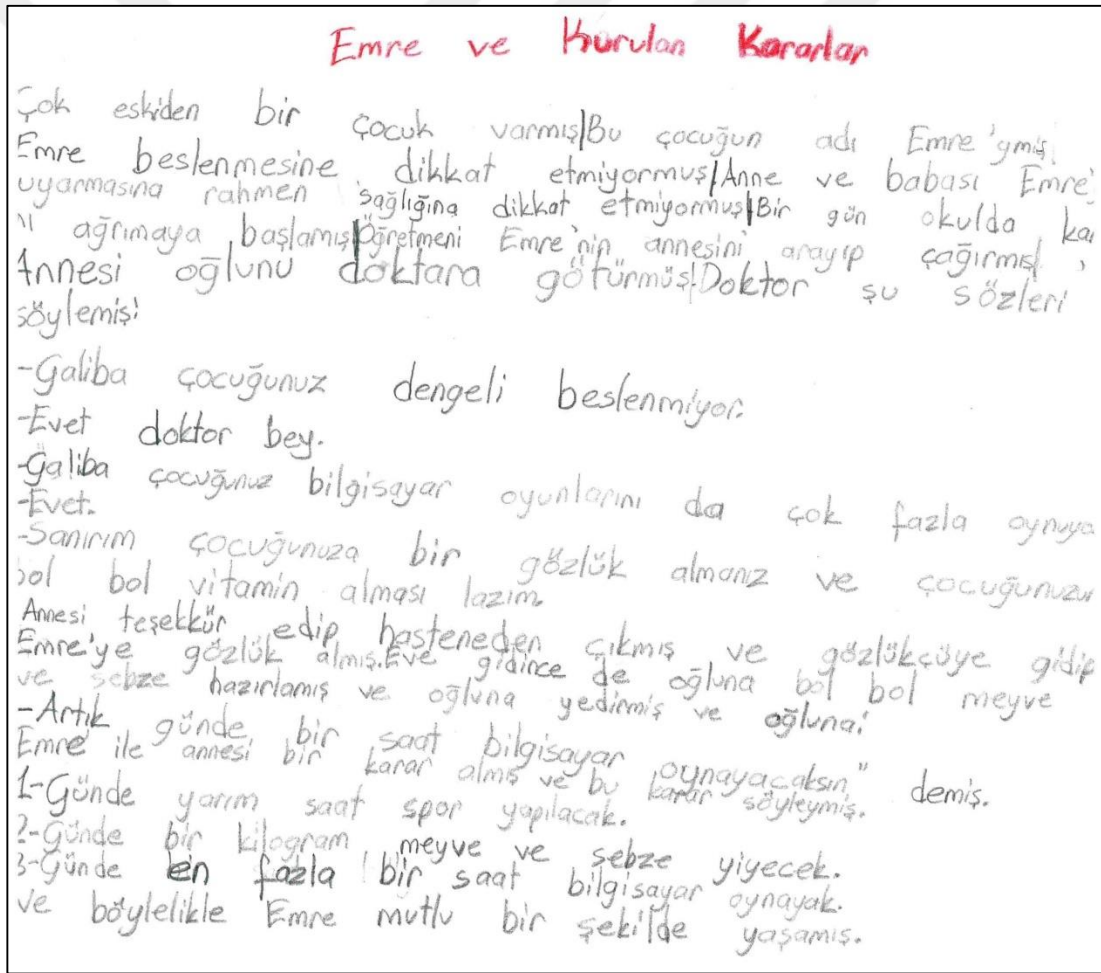 Emre ve Kurulan Kararlar
Çok eskiden bir çocuk varmış|Bu çocuğun adı Emre'ymiş.
Emre beslenmesine dikkat etmiyormuş|Anne ve babası Emre'
uyarmasına rahmen sağlığına dikkat etmiyormuş|Bir gün okulda ka
ağrımaya başlamış|Öğretmeni Emre'nin annesini arayıp çağırmış|
Annesi oğlunu doktara götürmüş|Doktor şu sözleri
söylemiş:
-Galiba çocuğunuz dengeli beslenmiyor.
-Evet doktor bey.
-Galiba çocuğunuz bilgisayar oyunlarını da çok fazla oynuyo
-Evet.
-Sanırım çocuğunuza bir gözlük almanız ve çocuğunuzu
bol bol vitamin alması lazım.
Annesi teşekkür edip hasteneden çıkmış ve gözlükçüye gidip
Emre'ye gözlük almış.Eve gidince de oğluna bol bol meyve
ve sebze hazırlamış ve oğluna yedirmiş ve oğluna:
-Artık günde bir saat bilgisayar oynayacaksın" demiş.
Emre ile annesi bir karar almış ve bu karar söyleymiş.
1-Günde yarım saat spor yapılacak.
2-Günde bir kilogram meyve ve sebze yiyecek.
3-Günde en fazla bir saat bilgisayar oynayak.
ve böylelikle Emre mutlu bir şekilde yaşamış.